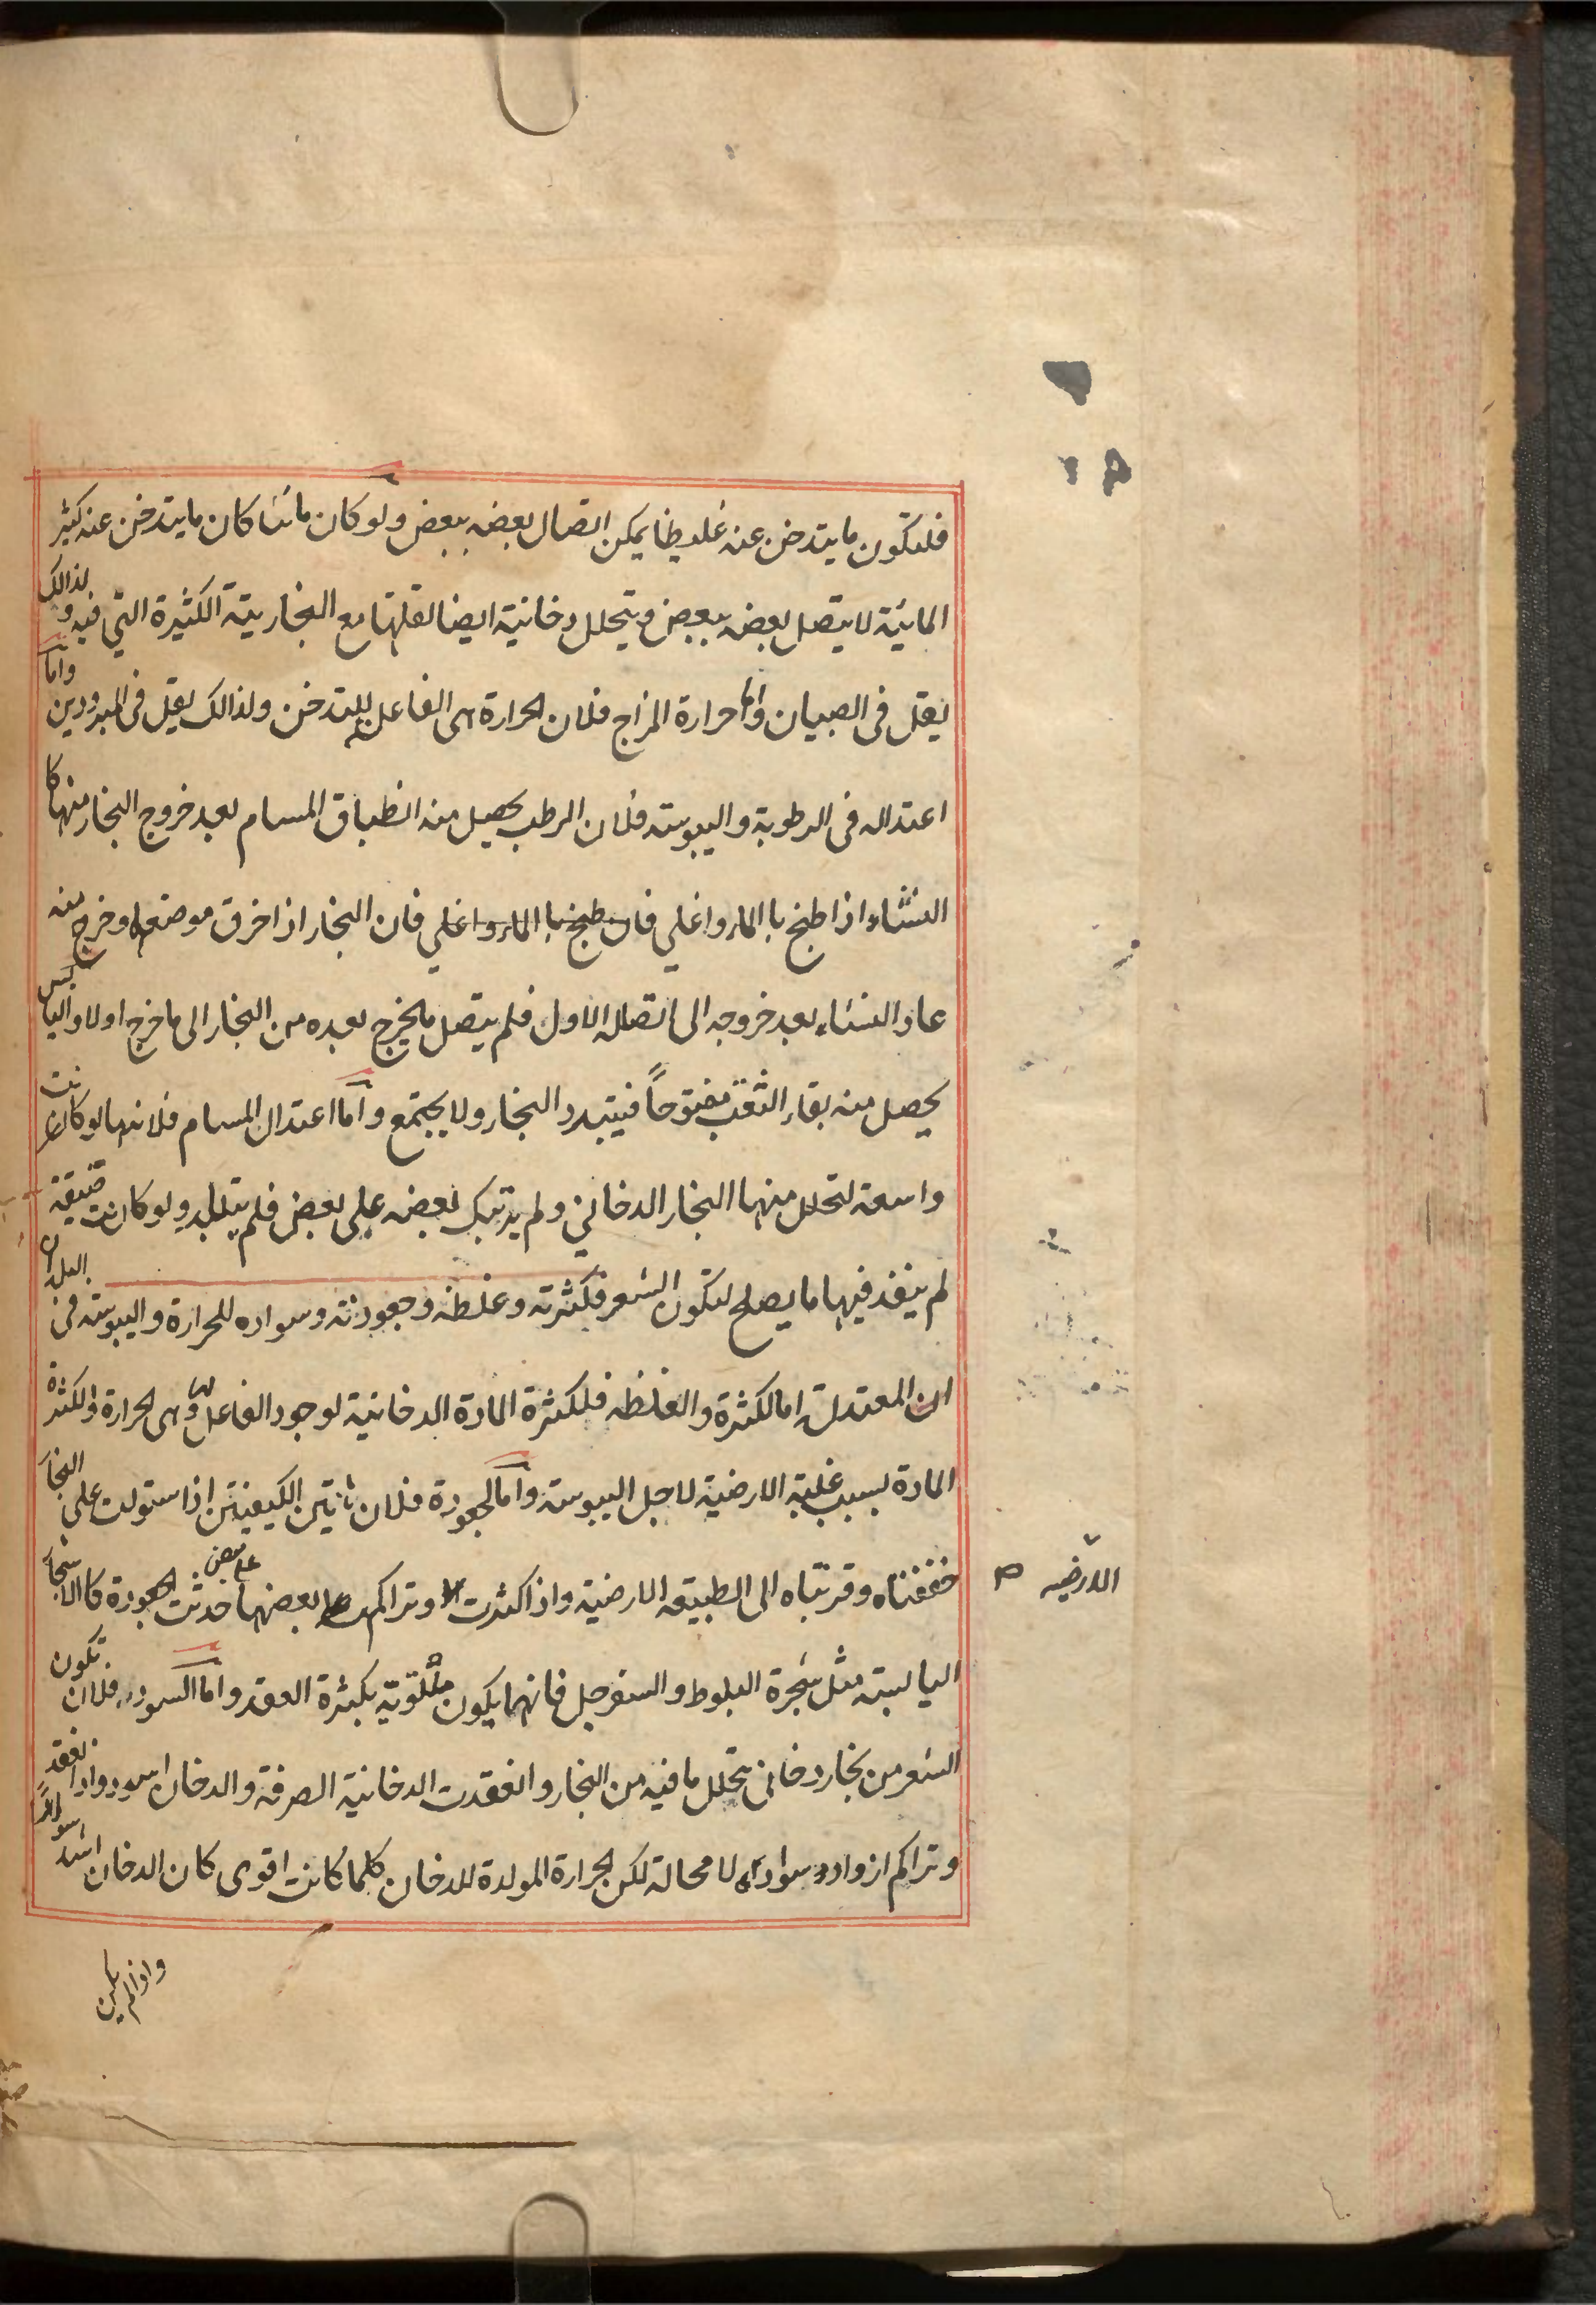 فلتكون ما يتدخن عنه غليظا يمكن اتصال بعضه ببعض ولو كان مائيا كان ما يتدخن عنه كثير
المائية لا يتصل بعضه ببعض ويتحلل دخانية ايضا لقلتها مع البخارية الكثيرة التي فيه ولذالك
يقل في الصبيان واما حرارة المزاج فلان الحرارة هي الفاعل للتدخن ولذالك يقل في المبرودين واما
اعتداله في الرطوبة واليبوسة فلان الرطب يحصل منه انطباق المسام بعد خروج البخار منها كا
النشاء اذا طبخ با الماء واغلي فان طبخ با الماء واغلي فان البخار اذا خرق موضعا وخرج منه
عاد النشاء بعد خروجه الى اتصاله الاول فلم يتصل ما يخرج بعده من البخار الى ما خرج اولا واليابس
يحصل منه بقاء الثقب مفتوحاً فيتبدد البخار ولا يجتمع واما اعتدال المسام فلانها لو كانت
واسعة لتحلل منها البخار الدخاني ولم يرتبك بعضه على بعض فلم يتلبد ولو كانت ضيقة
لم ينفذ فيها ما يصلح لتكون الشعر فكثرته وغلظه وجعودته وسواده للحرارة واليبوسة في البلدان
المعتدلة اما لكثرة والغلظه فلكثرة المادة الدخانية لوجود الفاعل وهي الحرارة ولكثرة
المادة بسبب غلبة الارضية لاجل اليبوسة واما الجعودة فلان هاتين الكيفيتين اذا استولت على البخار
خففتاه وقربتاه الى الطبيعة الارضية واذا كثرت وتراكم بعضها على بعض حدثت الجعودة كا الاشجار
اليابسة مثل شجرة البلوط والسفرجل فانهما يكون ملتوية بكثرة العقد واما السواد فلان
الشعر من بخار دخاني تحلل ما فيه من البخار وانعقدت الدخانية الصرفة والدخان اسود واذا انعقد
وتراكم ازداد سواده لا محالة لكن الحرارة المولدة للدخان كلما كانت اقوى كان الدخان اشد سوادا
الارضيه
واذا لم يكن